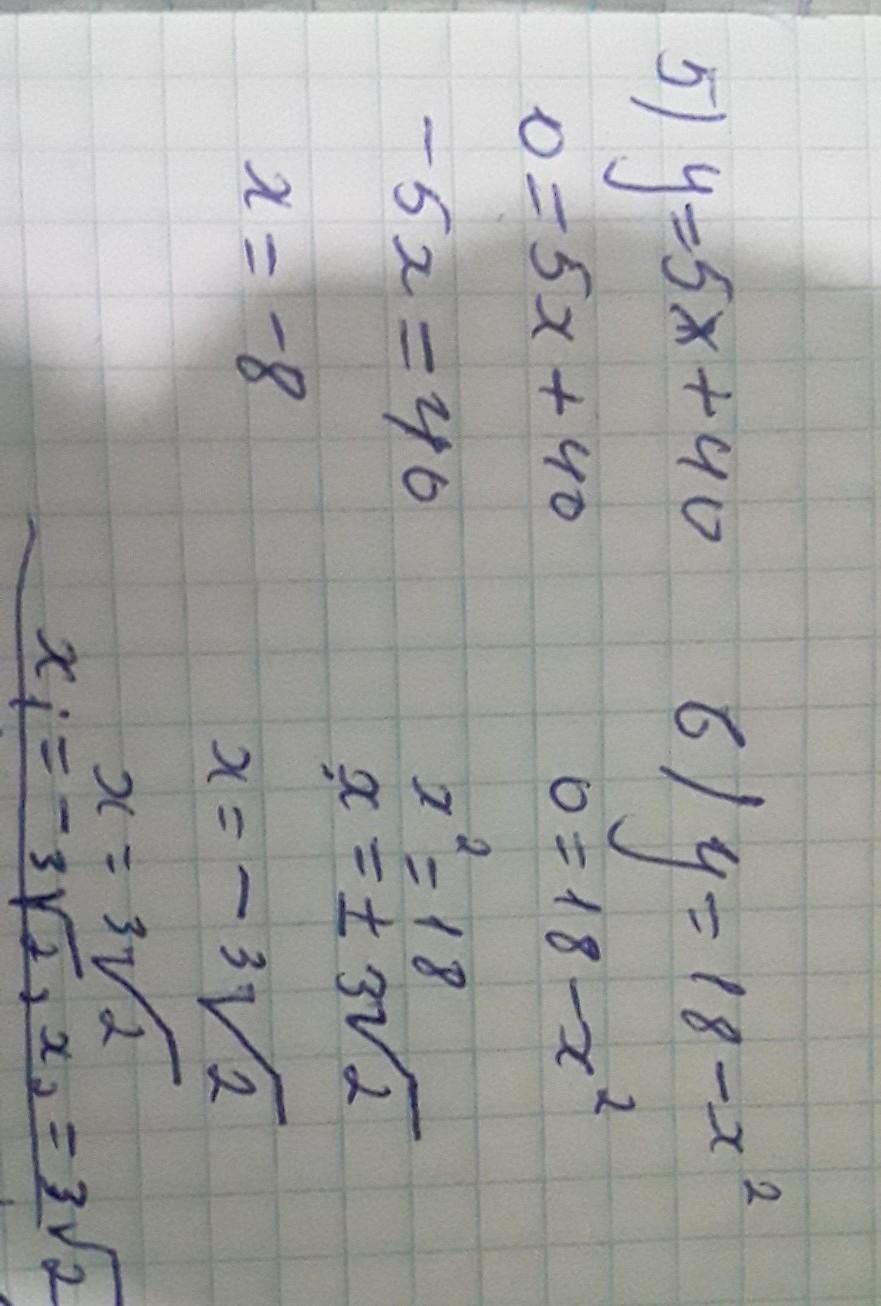 5) y=5x+40
0=5x+40
-5x=40
x=-8
6) y=18-x²
0=18-x²
x²=18
x=±3√2
x=-3√2
x=3√2
x₁=-3√2, x₂=3√2